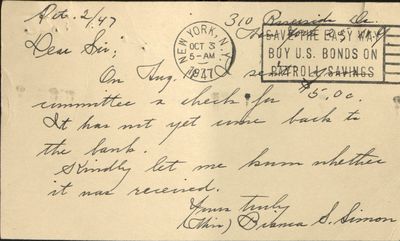 Oct. 2/47
310 Riverside Dr.
New York 25 N.Y.
NEW YORK, N.Y.
OCT 3
5-AM
1947
SAVE THE EASY WAY
BUY U.S. BONDS ON
PAYROLL SAVINGS
Dear Sir;
On Aug. I sent
committee a check for $5.00.
It has not yet come back to
the bank.
Kindly let me know whether
it was received.
Yours truly
(Miss) Bianca S. Simon